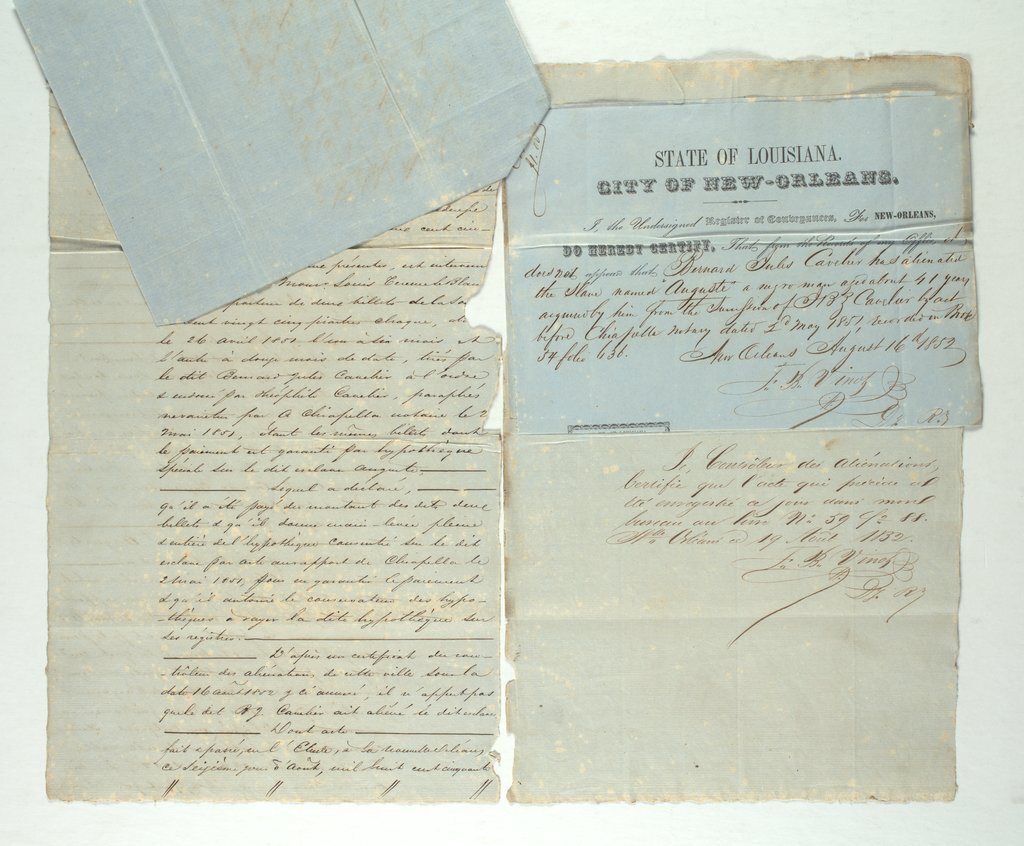 me présentes, est intervenu
le 26 avril 1851. l'un à six mois et
l'autre à douze mois de date, tirés par
le dit Bernard Jules Cavelier à l'ordre
endossé par Théophile Cavelier, paraphés
nevarietur par A Chiapella notaire le 2
mai 1851, étant les mêmes billets dont
le paiement est garanti par hypothèque
Spéciale sur le dit esclave Auguste
Lequel a déclaré,
qu'il a été payé du montant des dits deux
billets & qu'il donne main-levée pleine
& entière de l'hypothèque consentie sur le dit
esclave par acte au rapport de Chiapella le
2 mai 1851, pour en garantir le paiement
& qu'il autorise le conservateur des hypo-
-thèques à rayer la dite hypothèque sur
ses registres.
D'après un certificat du con-
-trôleur des aliénations de cette ville, sous la
date 16 août 1852 & ci annexé, il n'appert pas
que le dit B J. Cavelier ait aliéné le dit esclave
Dont acte
fait & passé, en l'Etude, à la Nouvelle Orléans,
ce Seizième jour d'Août, mil huit cent cinquante
STATE OF LOUISIANA.
CITY OF NEW-ORLEANS.
I, the Undersigned Register of Conveyances, For NEW-ORLEANS,
DO HEREBY CERTIFY, That from the Records of my Office it
does not appear that Bernard Jules Cavelier has alienated
the Slave named Auguste a negro man aged about 41 years
acquired by him from the Succession of Cavelier by act
before Chiapella notary dated 2d May 1851, recorded in Book
54 folio 636.
New Orleans August 16th 1852
F. B. Vinot
Dy. Rr
Je, Contrôleur des aliénations,
Certifie que l'acte qui précède a
été enregistré ce jour dans mon
bureau au livre No. 59 fo. 88.
Nlle Orléans ce 19 Août 1852.
F. B. Vinot
Dy. Rr